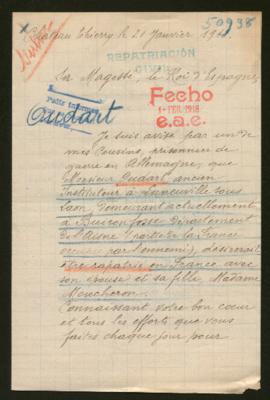 50938
Château Thierry le 21 Janvier 191
REPATRIACIÓN
CIVIL
Sa Majesté, le Roi d'Espagne,
Fecho
1-FEB.1918
e.a.e.
Oudart
Je suis avisé par un de
mes Cousins, prisonnier de
guerre en Allemagne, que
Monsieur Oudart, ancien
Instituteur à sous
Laon, demeurant actuellement
à Buironfosse Département
de l'Aisne (partie de la France
occupée par l'ennemi) désirerait
être rapatrié en France avec
son épouse et sa fille, Madame
Moucheron.
Connaissant votre bon cœur
et tous les efforts que vous
faites chaque jour pour